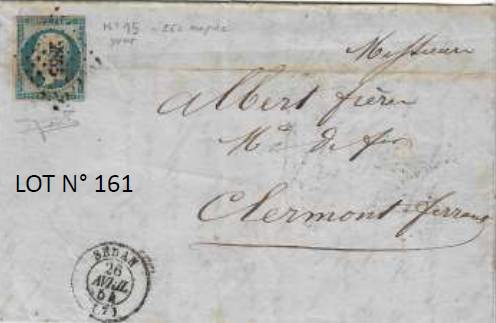 N° 15
Messieurs
Albert frères
Mds de fer
LOT N° 161
Clermont ferrand
SEDAN
26
AVRIL
54
(7)